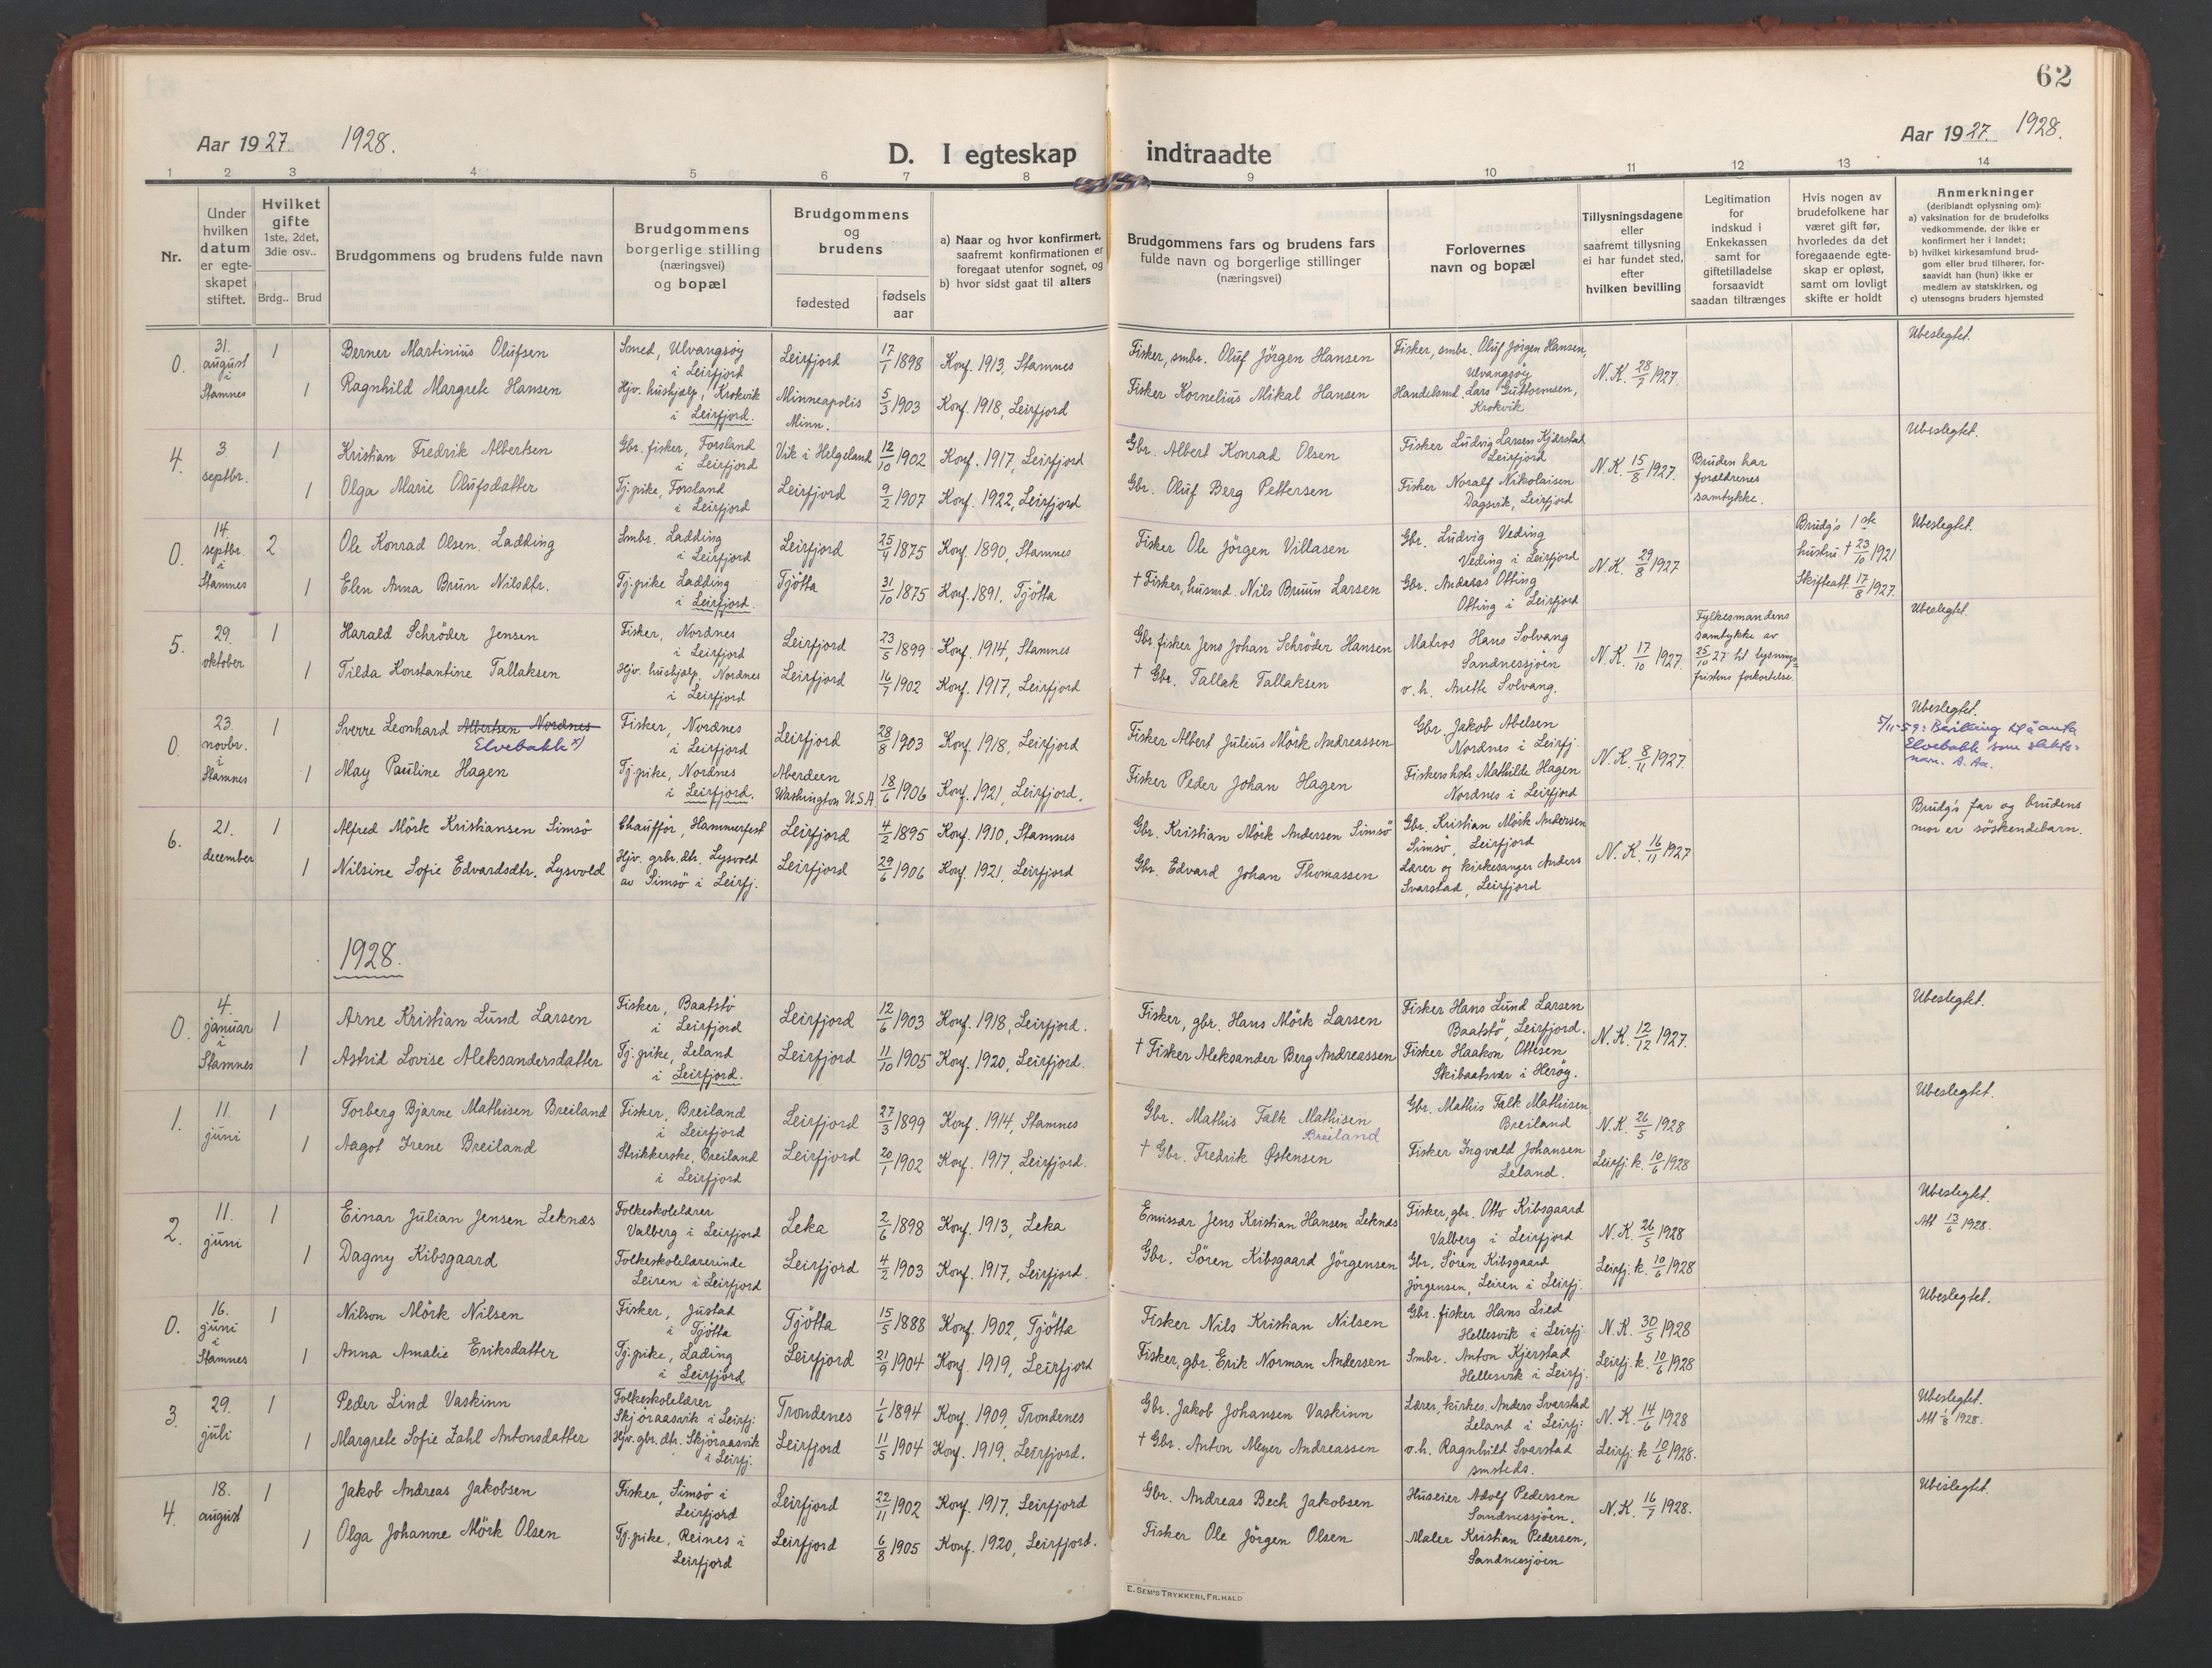 62
Aar 1927. 1928.
D. I egteskap indtraadte
Aar 1927. 1928.
1 2 3 4 5 6 7 8 9 10 11 12 13 14
Nr.
Under hvilken datum er egte- skapet stiftet.
Hvilket gifte 1ste, 2det, 3die osv..
Brdg.. Brud
Brudgommens og brudens fulde navn
Brudgommens borgerlige stilling (næringsvei) og bopæl
Brudgommens og brudens
fødested
fødsels aar
a) Naar og hvor konfirmert, saafremt konfirmationen er foregaat utenfor sognet, og
b) hvor sidst gaat til alters
Brudgommens fars og brudens fars fulde navn og borgerlige stillinger (næringsvei)
Forlovernes navn og bopæl
Tillysningsdagene eller saafremt tillysning ei har fundet sted, efter hvilken bevilling
Legitimation for indskud i Enkekassen samt for giftetilladelse forsaavidt saadan tiltrænges
Hvis nogen av brudefolkene har været gift før, hvorledes da det foregaaende egte- skap er opløst, samt om lovligt skifte er holdt
Anmerkninger (deriblandt oplysning om):
a) vaksination for de brudefolks vedkommende, der ikke er konfirmert her i landet;
b) hvilket kirkesamfund brud- gom eller brud tilhører, for- saavidt han (hun) ikke er medlem av statskirken, og
c) utensogns bruders hjemsted
0. 31. august i Stamnes 1 Berner Martinius Olufsen Smed, Ulvangsøy i Leirfjord Leirfjord 17/1 1898 Konf. 1913, Stamnes Fisker, smbr. Oluf Jörgen Hansen Fisker, smbr. Oluf Jörgen Hansen, Ulvangsöy N.K. 28/7 1927. Ubeslegtet.
1 Ragnhild Margrete Hansen Hjv. hushjelp, Krokvik i Leirfjord. Minneapolis Minn. 5/3 1903 Konf. 1918, Leirfjord Fisker Kornelius Mikal Hansen Handelsmd. Lars Guttormsen, Krokvik
4. 3. septbr. 1 Kristian Fredrik Albertsen Gbr. fisker, Forsland i Leirfjord Vik i Helgeland 12/10 1902 Konf. 1917, Leirfjord Gbr. Albert Konrad Olsen Fisker Ludvig Larsen Kjærstad Leirfjord N.K. 15/8 1927. Bruden har forældrenes samtykke. Ubeslegtet.
1 Olga Marie Olufsdatter Tj.pike, Forsland i Leirfjord Leirfjord 9/2 1907 Konf. 1922, Leirfjord Gbr. Oluf Berg Pettersen Fisker Noralf Nikolaisen Dagsvik, Leirfjord
0. 14. septbr. i Stamnes 2 Ole Konrad Olsen Ladding Smbr. Ladding i Leirfjord Leirfjord 25/4 1875 Konf. 1890, Stamnes Fisker Ole Jörgen Villasen Gbr. Ludvig Veding Veding i Leirfjord N.K. 29/8 1927 Brudg's 1ste hustru † 23/10 1921 Skifteatt. 17/8 1927. Ubeslegtet.
1 Elen Anna Brun Nilsdtr. Tj.pike Ladding i Leirfjord. Tjötta 31/10 1875 Konf. 1891, Tjötta † Fisker, husmd. Nils Bruun Larsen Gbr. Andreas Otting Otting i Leirfjord
5. 29. oktober 1 Harald Schröder Jensen Fisker, Nordnes i Leirfjord Leirfjord 23/5 1899 Konf. 1914, Stamnes Gbr. fisker Jens Johan Schröder Hansen Matros Hans Solvang Sandnessjöen N.K. 17/10 1927. Fylkesmandens samtykke av 25/10 27 til lysnings- fristens forkortelse. Ubeslegtet.
1 Tilda Konstantine Tallaksen Hjv. hushjelp, Nordnes i Leirfjord Leirfjord 16/7 1902 Konf. 1917, Leirfjord † Gbr. Tallak Tallaksen o.h. Anette Solvang.
0. 23. novbr. i Stamnes 1 Sverre Leonhard Albertsen Nordnes Elvebakk x) Fisker, Nordnes i Leirfjord Leirfjord 28/8 1903 Konf. 1918, Leirfjord Fisker Albert Julius Mörk Andreassen Gbr. Jakob Abelsen Nordnes i Leirfj. N.K. 8/11 1927. Ubeslegtet. 5/11-59: Bevilling til å anta Elvebakk som slekts- navn. A. Aa.
1 May Pauline Hagen Tj.pike, Nordnes i Leirfjord. Aberdeen Washington U.S.A 18/6 1906 Konf. 1921, Leirfjord. Fisker Peder Johan Hagen Fiskers hstr. Mathilde Hagen Nordnes i Leirfjord
6. 21. december 1 Alfred Mörk Kristiansen Simsö Chauffør, Hammerfest Leirfjord 4/2 1895 Konf. 1910, Stamnes Gbr. Kristian Mörk Andersen Simsö Gbr. Kristian Mörk Andersen Simsö, Leirfjord N.K. 16/11 1927 Brudg's far og brudens mor er söskendebarn.
1 Nilsine Sofie Edvardsdtr. Lysvold Hjv. grbr. dtr. Lysvold av Simsö i Leirfj. Leirfjord 29/6 1906 Konf. 1921, Leirfjord Gbr. Edvard Johan Thomassen Lærer og kirkesanger Anders Svarstad, Leirfjord
1928.
0. 4. januar i Stamnes 1 Arne Kristian Lund Larsen Fisker, Baatstö i Leirfjord Leirfjord 12/6 1903 Konf. 1918, Leirfjord. Fisker, gbr. Hans Mörk Larsen Fisker Hans Lund Larsen Baatstö, Leirfjord. N.K. 12/12 1927. Ubeslegtet.
1 Astrid Lovise Aleksandersdatter Tj.pike, Leland i Leirfjord. Leirfjord 11/10 1905 Konf. 1920, Leirfjord. † Fisker Aleksander Berg Andreassen Fisker Haakon Ottesen Skibaatsvær i Heröy.
1. 11. juni 1 Torberg Bjarne Mathisen Breiland Fisker, Breiland i Leirfjord Leirfjord 27/3 1899 Konf. 1914, Stamnes Gbr. Mathis Falk Mathisen Breiland Gbr. Mathis Falk Mathisen Breiland N.K. 26/5 1928 Ubeslegtet.
1 Aagot Irene Breiland Strikkerske, Breiland i Leirfjord Leirfjord 20/1 1902 Konf. 1917, Leirfjord. † Gbr. Fredrik Østensen Fisker Ingvald Johansen Leland. Leirfj. k. 10/6 1928
2. 11. juni 1 Einar Julian Jensen Leknæs Folkeskolelærer Valberg i Leirfjord Leka 2/6 1898 Konf. 1913, Leka Emissær Jens Kristian Hansen Leknæs Fisker, gbr. Otto Kibsgaard Valberg i Leirfjord N.K. 26/5 1928 Ubeslegtet. Att 13/6 1928.
1 Dagny Kibsgaard Folkeskolelærerinde Leiren i Leirfjord Leirfjord 4/2 1903 Konf. 1917, Leirfjord. Gbr. Sören Kibsgaard Jörgensen Gbr. Sören Kibsgaard Jörgensen, Leiren i Leirfj. Leirfj. k. 10/6 1928
0. 16. juni i Stamnes 1 Nilson Mörk Nilsen Fisker, Justad i Tjötta Tjötta 15/5 1888 Konf. 1902, Tjötta Fisker Nils Kristian Nilsen Gbr. fisker Hans Lied Hellesvik i Leirfj. N.K. 30/5 1928 Ubeslegtet.
1 Anna Amalie Eriksdatter Tj.pike, Lading i Leirfjord Leirfjord 21/9 1904 Konf. 1919, Leirfjord Fisker, gbr. Erik Norman Andersen Smbr. Anton Kjerstad Hellesvik i Leirfj. Leirfj. k. 10/6 1928
3. 29. juli 1 Peder Lind Vaskinn Folkeskolelærer Skjöraasvik i Leirfj. Trondenes 1/6 1894 Konf. 1909, Trondenes Gbr. Jakob Johansen Vaskinn Lærer, kirkes. Anders Svarstad Leland i Leirfj. N.K. 14/6 1928 Ubeslegtet. Att 1/8 1928.
1 Margrete Sofie Zahl Antonsdatter Hjv. gbr. dtr. Skjöraasvik i Leirfj. Leirfjord 11/5 1904 Konf. 1919, Leirfjord. † Gbr. Anton Meyer Andreassen o.h. Ragnhild Svarstad smsteds. Leirfj. k 10/6 1928.
4. 18. august 1 Jakob Andreas Jakobsen Fisker, Simsö i Leirfjord Leirfjord 22/11 1902 Konf. 1917, Leirfjord Gbr. Andreas Bech Jakobsen Huseier Adolf Pedersen Sandnessjöen. N.K. 16/7 1928. Ubeslegtet.
1 Olga Johanne Mörk Olsen Tj.pike, Reines i Leirfjord Leirfjord 6/8 1905 Konf. 1920, Leirfjord. Fisker Ole Jörgen Olsen Maler Kristian Pedersen, Sandnessjöen
E. SEM'S TRYKKERI, FR.HALD